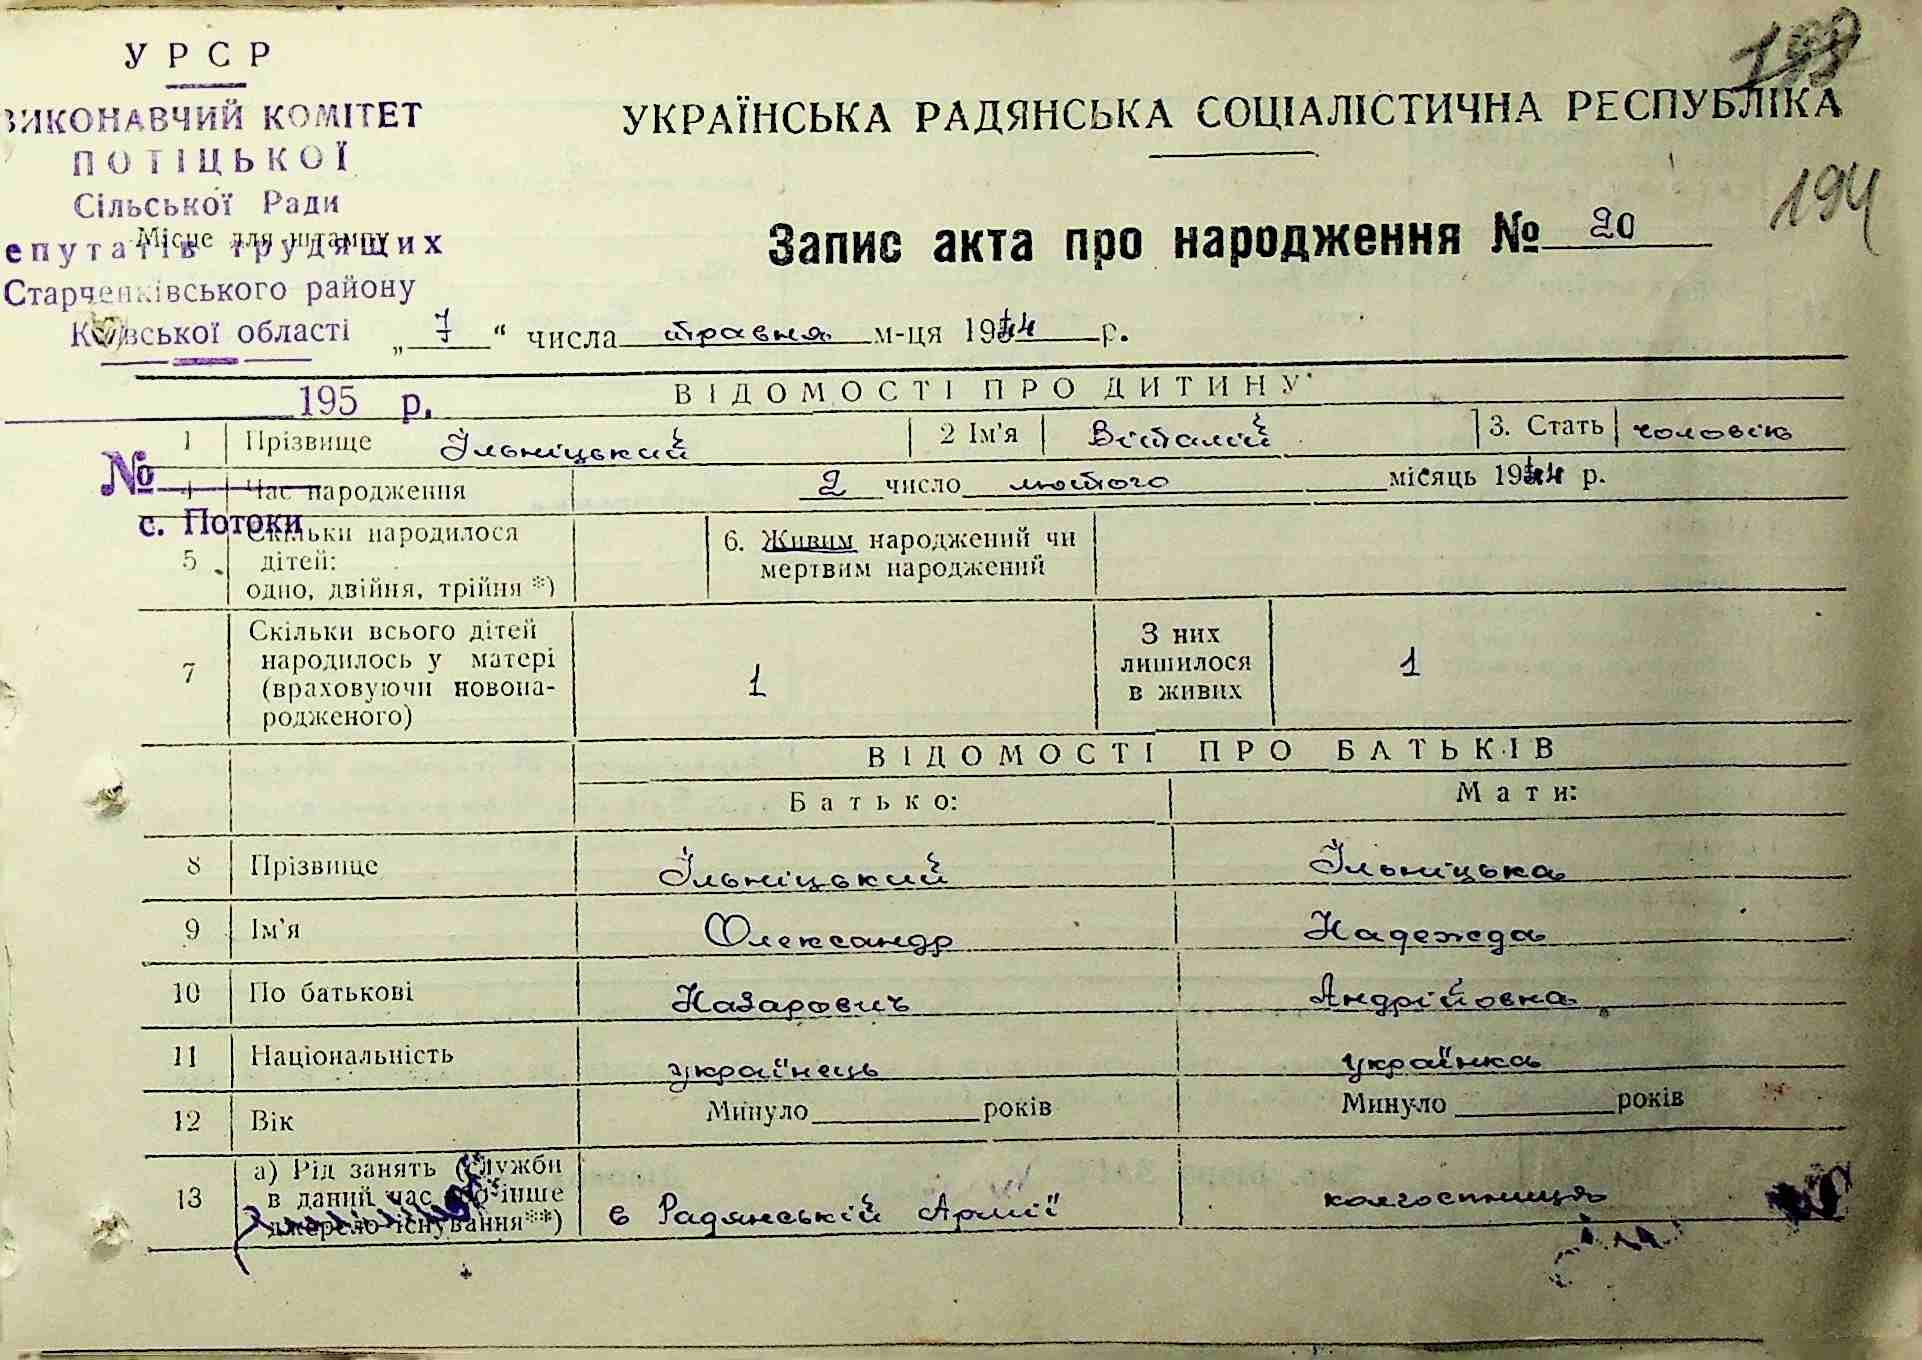 УРСР
ВИКОНАВЧИЙ КОМІТЕТ
ПОТІЦЬКОЇ
Сільської Ради
Місце для штампу
епутатів трудящих
Старченківського району
Київської області
195 р.
№
с. Потоки
194
УКРАЇНСЬКА РАДЯНСЬКА СОЦІАЛІСТИЧНА РЕСПУБЛІКА
Запис акта про народження № 20
„ 7 “ числа травня м-ця 1944 р.
ВІДОМОСТІ ПРО ДИТИНУ
1 Прізвище Ільніцький 2 Ім'я Віталій 3. Стать чоловік
4 Час народження 2 число лютого місяць 1944 р.
5 Скільки народилося дітей: одно, двійня, трійня *) 6. Живим народжений чи мертвим народжений
7 Скільки всього дітей народилось у матері (враховуючи новона-родженого) 1 З них лишилося в живих 1
ВІДОМОСТІ ПРО БАТЬКІВ
Батько: Мати:
8 Прізвище Ільніцький Ільніцька
9 Ім'я Олександр Надежда
10 По батькові Назарович Андрійовна
11 Національність українець українка
12 Вік Минуло років Минуло років
13 а) Рід занять (служби в даний час або інше джерело існування**) в Радянській Армії колгоспниця